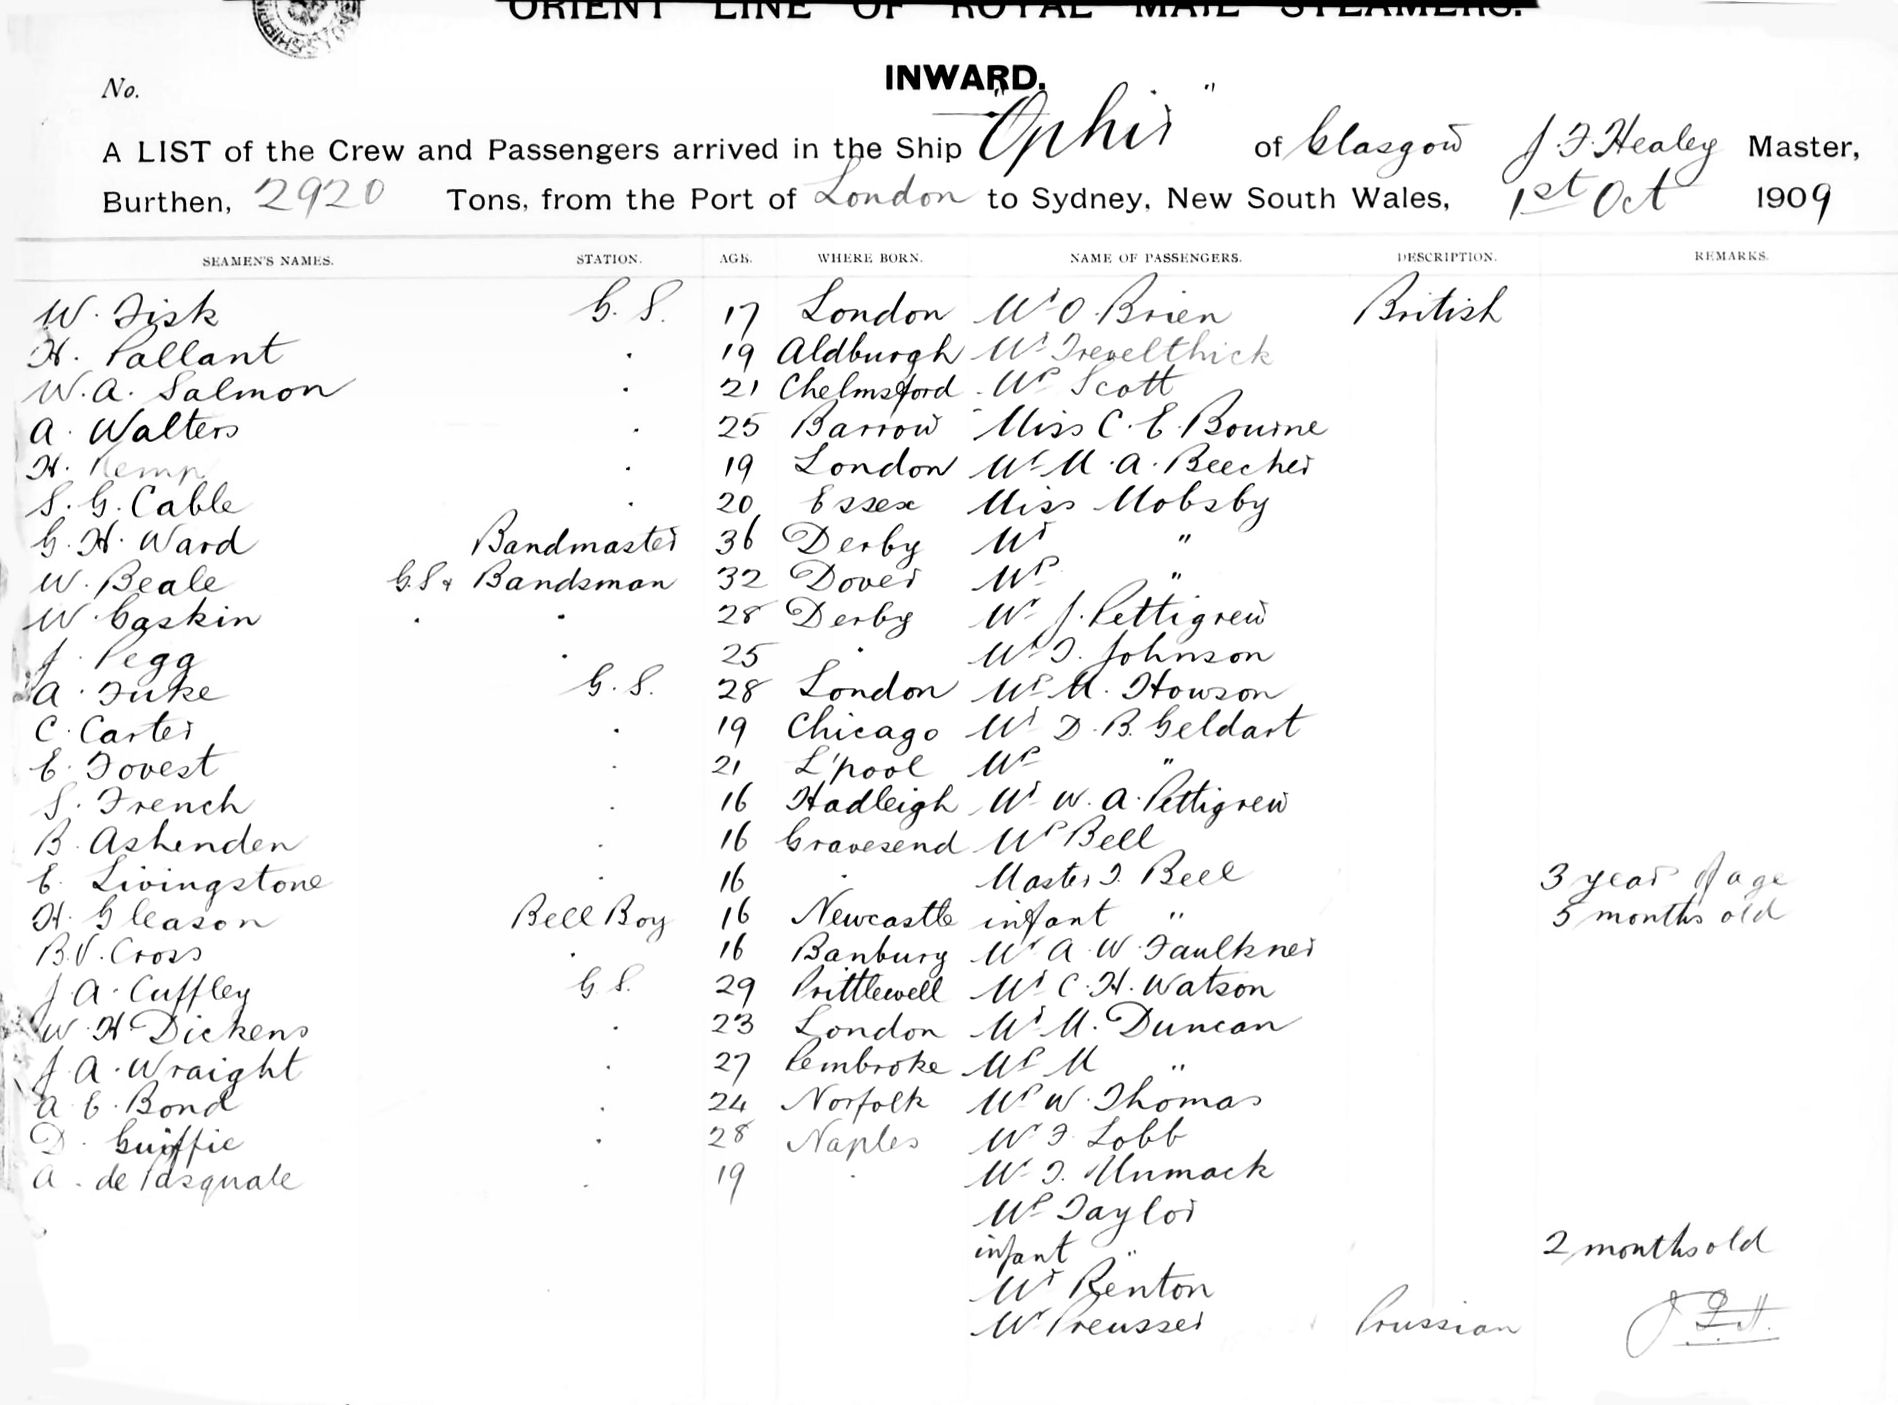 ORIENT LINE OF ROYAL MAIL STEAMERS.
INWARD.
No.
A LIST of the Crew and Passengers arrived in the Ship "Ophir" of Glasgow J. F. Healey Master,
Burthen, 2920 Tons, from the Port of London to Sydney, New South Wales, 1st Oct 1909
SEAMEN'S NAMES. STATION. AGE. WHERE BORN. NAME OF PASSENGERS. DESCRIPTION. REMARKS.
W. Fisk G. S. 17 London Mr O. Brien British
H. Pallant . 19 Aldburgh Mr Trevelthick
W. A. Salmon . 21 Chelmsford Mrs Scott
A. Walters . 25 Barrow Miss C. E. Bourne
H. Kemp . 19 London Mr M. A. Beecher
S. G. Cable . 20 Essex Miss Mobsby
G. H. Ward Bandmaster 36 Derby Mr "
W. Beale G.S. & Bandsman 32 Dover Mrs "
W. Gaskin . . 28 Derby Mr J. Pettigrew
J. Pegg . 25 . Mr T. Johnson
A. Fuke G. S. 28 London Mrs M. Howson
C. Carter . 19 Chicago Mr D. B. Geldart
E. Fovest . 21 L'pool Mrs "
S. French . 16 Hadleigh Mr W. A. Pettigrew
B. Ashenden . 16 Gravesend Mrs Bell
E. Livingstone . 16 . Master I. Bell 3 years of age
H. Gleason Bell Boy 16 Newcastle infant " 5 months old
B. V. Cross . 16 Banbury Mr A. W. Faulkner
J. A. Cuffley G. S. 29 Prittlewell Mr C. H. Watson
W. H. Dickens . 23 London Mr M. Duncan
J. A. Wraight . 27 Pembroke Mrs M "
A. E. Bond . 24 Norfolk Mrs W. Thomas
D. Guiffie . 28 Naples Mr F. Lobb
A. de Pasquale . 19 . Mr T. Unmack
Mrs Taylor
infant " 2 months old
Mr Renton
Mr Preusser Prussian J. F. H.